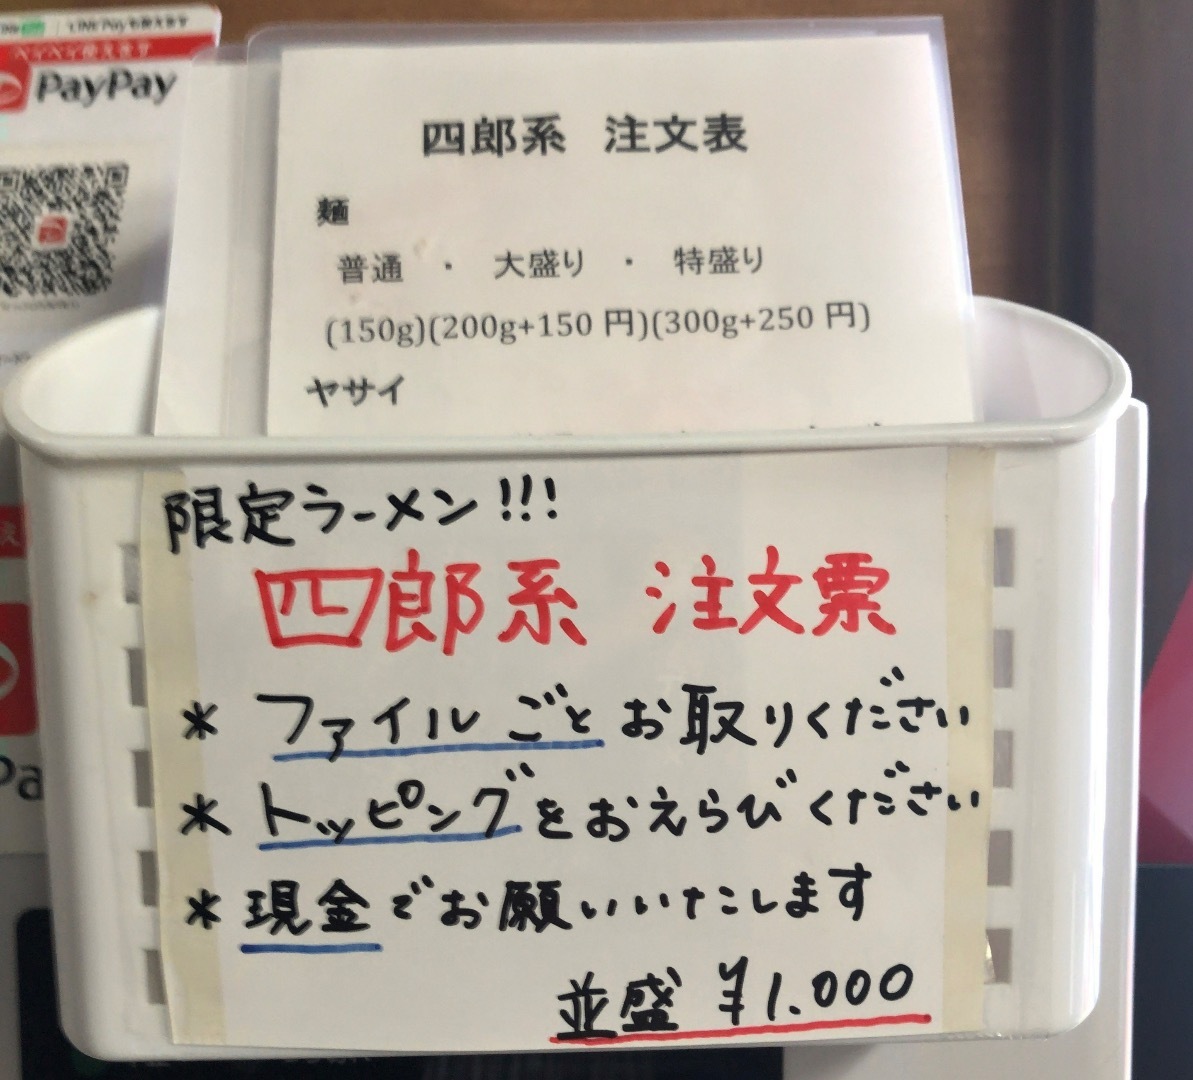 LINE Payも使えます
ペイペイ使えます
PayPay
四郎系 注文表
麺
普通 ・ 大盛り ・ 特盛り
(150g)(200g+150 円)(300g+250 円)
ヤサイ
限定ラーメン!!!
四郎系 注文票
* ファイルごとお取りください
* トッピングをおえらびください
* 現金でお願いいたします
並盛 ¥1.000
え
Pa